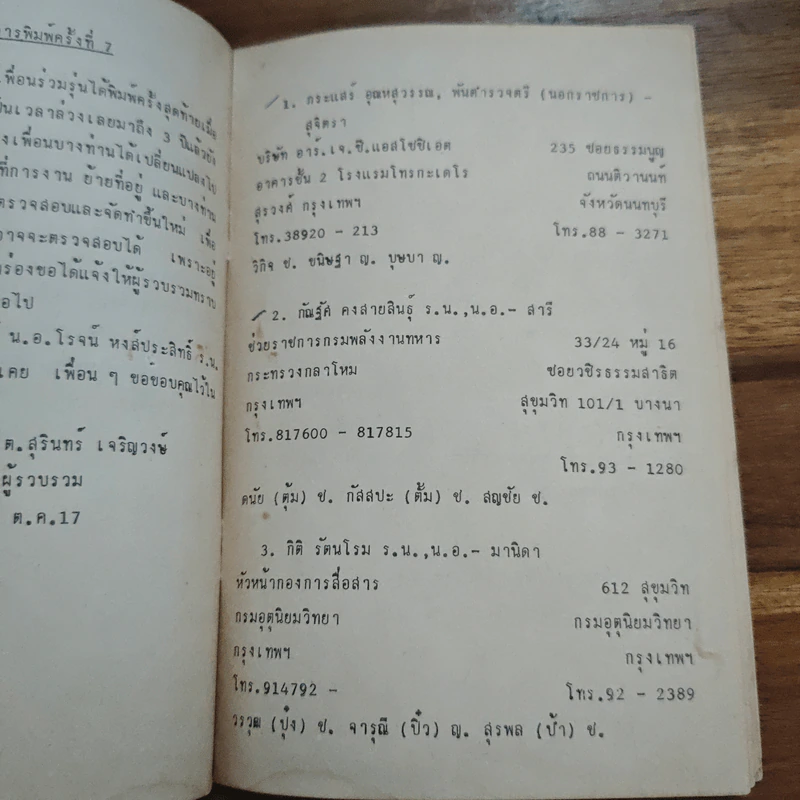 ารพิมพ์ครั้งที่ 7
เพื่อนร่วมรุ่นได้พิมพ์ครั้งสุดท้ายเมื่อ
ป็นเวลาล่วงเลยมาถึง 3 ปีแล้วยัง
งเพื่อนบางท่านได้เปลี่ยนแปลงไป
ที่การงาน ย้ายที่อยู่ และบางท่าน
ตรวจสอบและจัดทำขึ้นใหม่ เพื่อ
าจจะตรวจสอบได้ เพราะอยู่
ร่องขอได้แจ้งให้ผู้รวบรวมทราบ
อไป
น.อ.โรจน์ หงส์ประสิทธิ์ ร.น.
เคย เพื่อน ๆ ขอขอบคุณไว้ใน
ต.สุรินทร์ เจริญวงษ์
ผู้รวบรวม
ต.ค.17
1. กระแสร์ อุณหสุวรรณ, พันตำรวจตรี (นอกราชการ) -
สุจิตรา
บริษัท อาร์.เจ.ซี.แอสโซซิเอต 235 ซอยธรรมนูญ
อาคารชั้น 2 โรงแรมโทรกะเดโร ถนนติวานนท์
สุรวงศ์ กรุงเทพฯ จังหวัดนนทบุรี
โทร.38920 - 213 โทร.88 - 3271
วิกิจ ช. ขนิษฐา ญ. บุษบา ญ.
2. กัณฐัศ คงสายสินธุ์ ร.น.,น.อ.- สารี
ช่วยราชการกรมพลังงานทหาร 33/24 หมู่ 16
กระทรวงกลาโหม ซอยวชิรธรรมสาธิต
กรุงเทพฯ สุขุมวิท 101/1 บางนา
โทร.817600 - 817815 กรุงเทพฯ
โทร.93 - 1280
ดนัย (ตุ้ม) ช. กัสสปะ (ตั้ม) ช. สญชัย ช.
3. กิติ รัตนโรม ร.น.,น.อ.- มานิดา
หัวหน้ากองการสื่อสาร 612 สุขุมวิท
กรมอุตุนิยมวิทยา กรมอุตุนิยมวิทยา
กรุงเทพฯ กรุงเทพฯ
โทร.914792 - โทร.92 - 2389
วรวุฒ (ปุ๋ง) ช. จารุณี (ปิ๋ว) ญ. สุรพล (ป้ำ) ช.